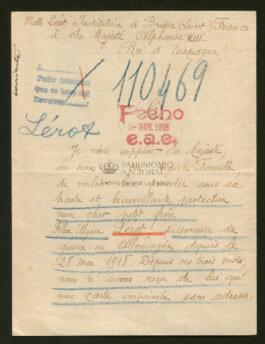 Melle Lérot Institutrice à Briare (Loiret) France
à Sa Majesté Alphonse XIII
Roi d'Espagne
110469
Pedir
que se haga
Fecho
5-NOV. 1918
e.a.e.
Lérot
Je viens supplier Sa Majesté,
au nom de Famille
de vouloir prendre sous sa
haute et bienveillante protection
mon cher petit frère
PATRIMONIO
NACIONAL
Lerot prisonnier de
guerre en Allemagne depuis le
28 mai 1918. Depuis ces trois mois
nous n'avons reçu de lui qu'
une carte imprimée sans adresse.